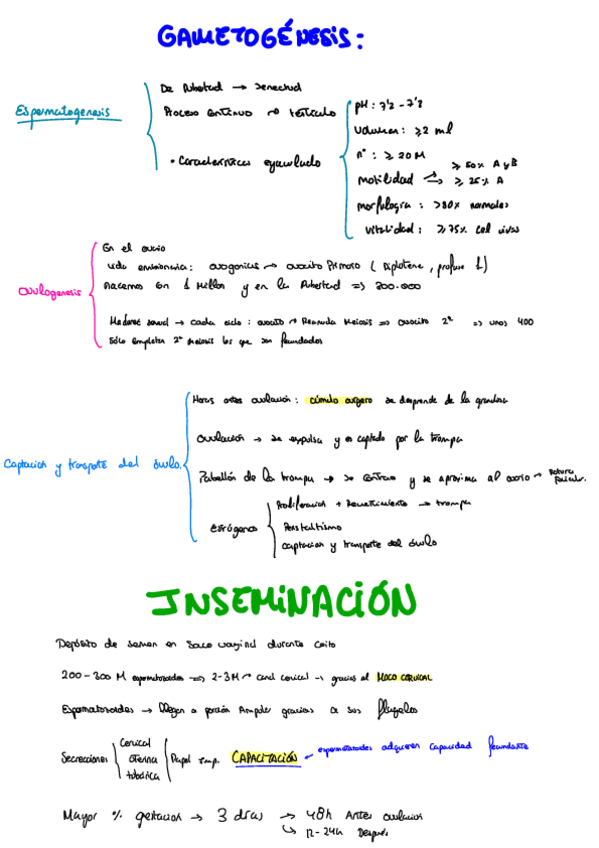 GAMETOGÉNESIS:
Espermatogenesis
De Pubertad → senectud
Proceso continuo → testículo
• Características eyaculado
pH: 7'2 - 7'8
Volumen: ≥2 ml
nº: ≥ 20 M
motilidad → ≥ 50% A y B
→ ≥ 25% A
morfología: >80% normales
vitalidad: ≥ 75% cel vivas
ovulogenesis
En el ovario
vida embrionaria: ovogonias → ovocito Primario ( Diplotene, profase 1)
nacemos con 1 Millon y en la Pubertad => 300.000
Madurez sexual → cada ciclo: ovocito → Reanuda Meiosis => ovocito 2º => unos 400
Sólo completan 2ª meiosis los que son fecundados
Captacion y transporte del óvulo
Horas antes ovulación: cúmulo oóforo se desprende de la granulosa
Ovulación → se expulsa y es captado por la trompa
Pabellón de la trompa → se contrae y se aproxima al ovario → Rotura folicular.
Estrógenos
Proliferacion + → trompa
Peristaltismo
captacion y transporte del óvulo
INSEMINACIÓN
Depósito de semen en Saco vaginal durante coito
200 - 300 M espermatozoides => 2-3M → canal cervical → gracias al MOCO CERVICAL
Espermatozoides → llegan a porción Ampular gracias a sus flagelos
Secreciones
Cervical
uterina
tubárica
Papel imp. CAPACITACIÓN → espermatozoides adquieren capacidad fecundante
Mayor % gestacion → 3 días → 48h Antes ovulacion
↳ 12-24h Después